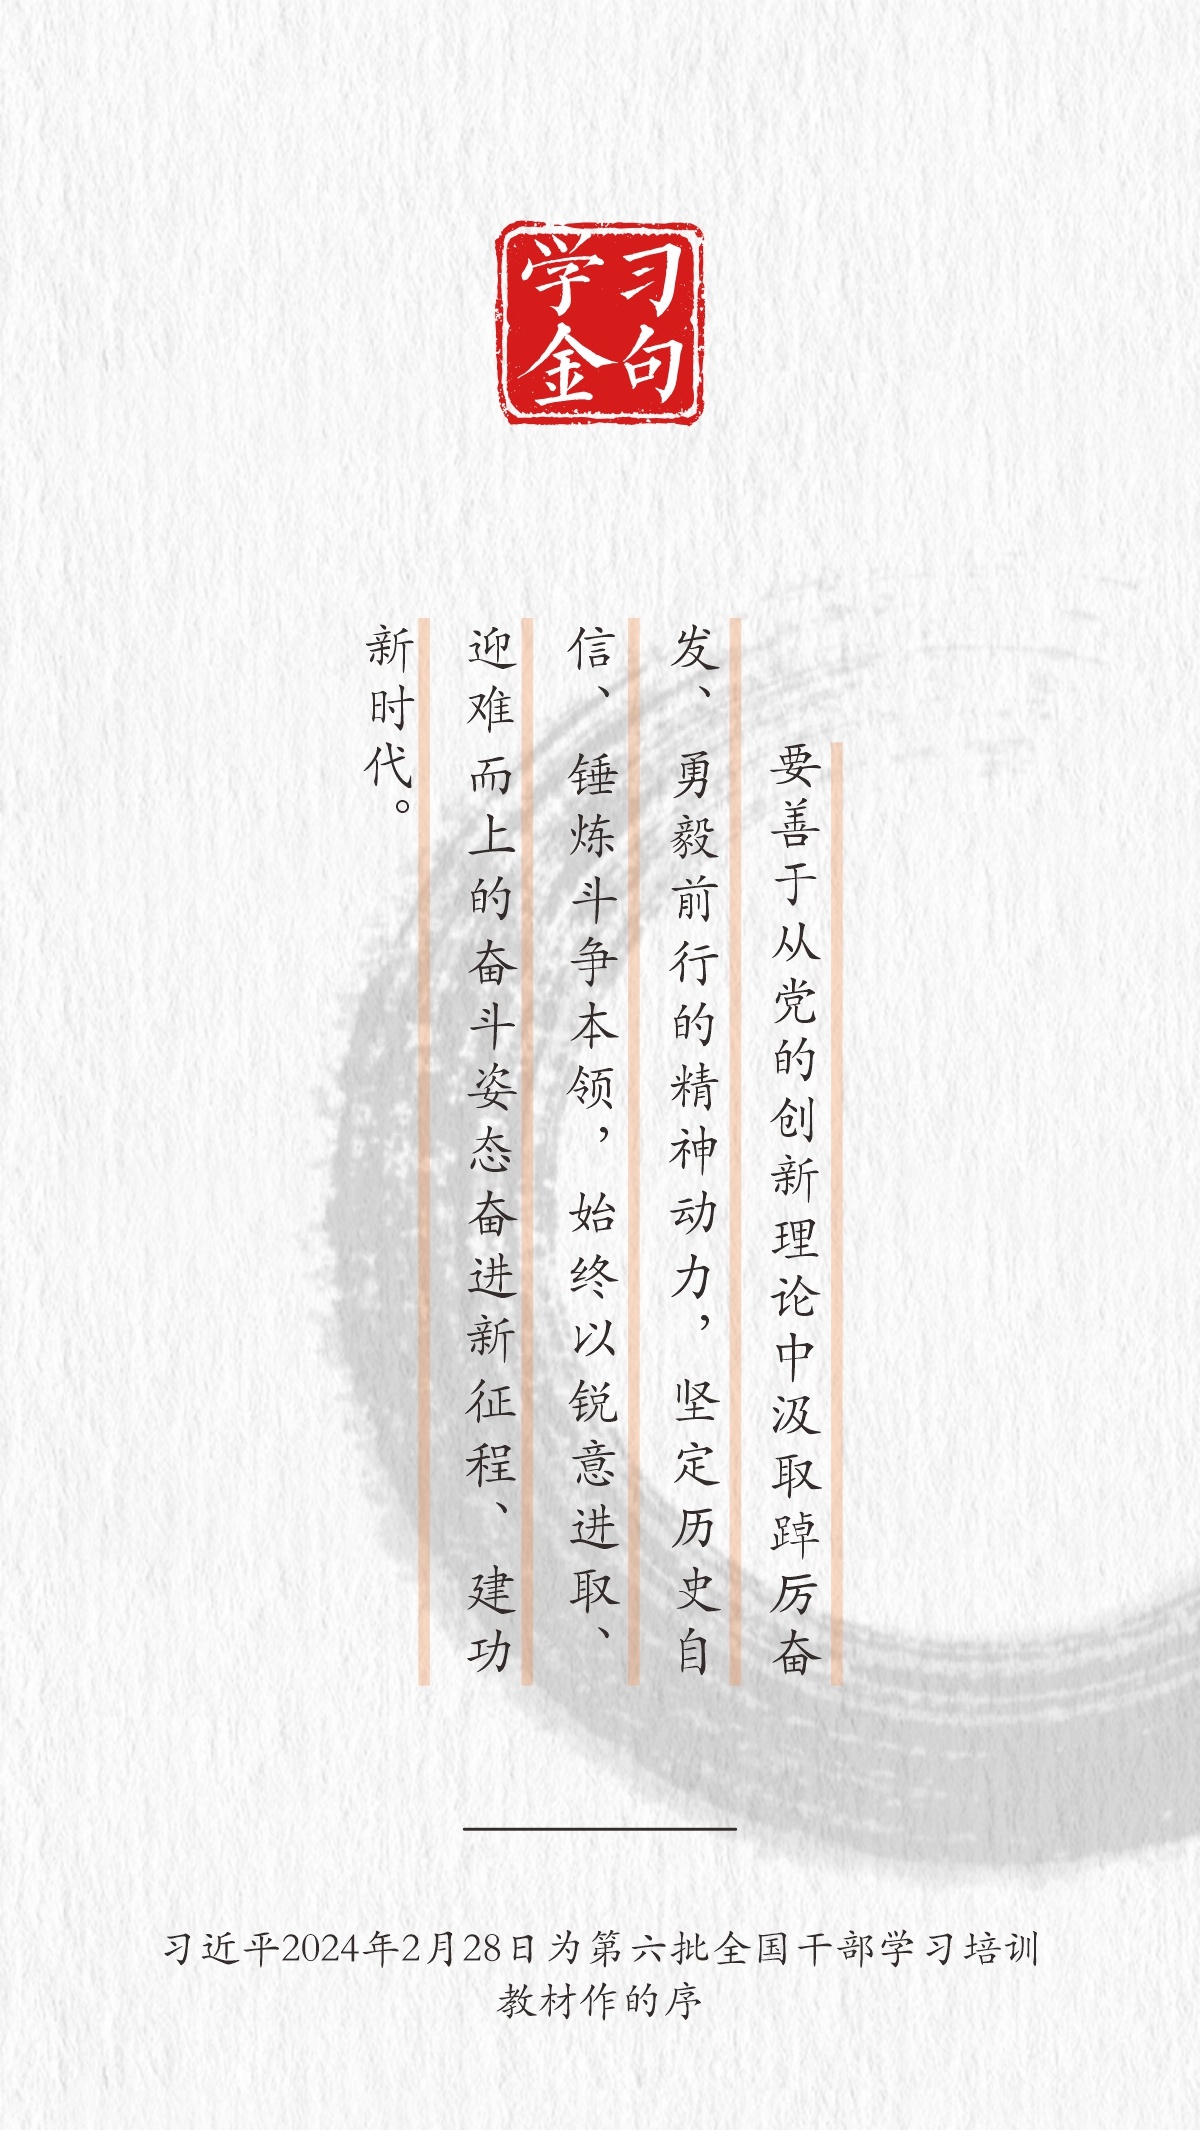 学习
金句
要善于从党的创新理论中汲取踔厉奋
发、勇毅前行的精神动力，坚定历史自
信、锤炼斗争本领，始终以锐意进取、
迎难而上的奋斗姿态奋进新征程、建功
新时代。
习近平2024年2月28日为第六批全国干部学习培训
教材作的序